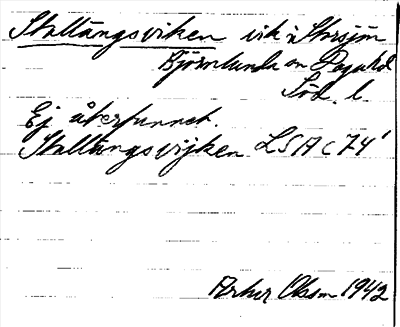 Stallängsviken vik i Storsjön
Björnlunda sn Daga hd
Söd. l.
Ej återfunnet.
Stallängsvijken LSA C 74¹
1942